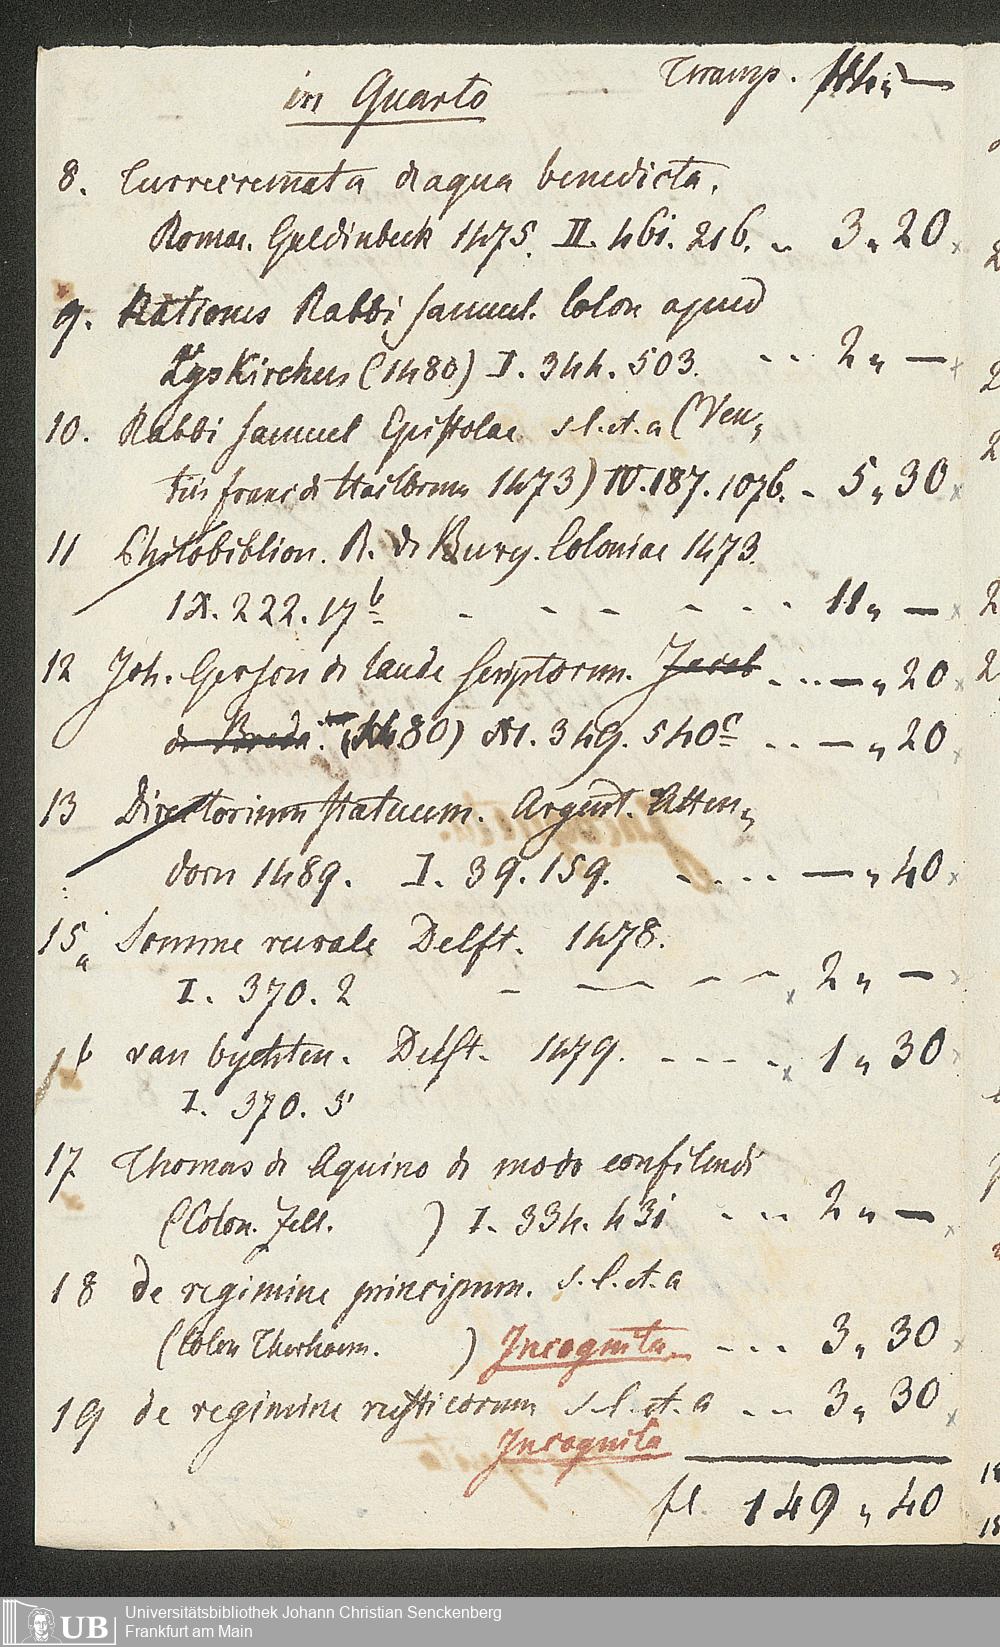 in Quarto Transp.
8. Turrecremata de aqua benedicta.
Romae. Guldinbeck 1475. II. 461. 216. .. 3 „ 20
9. Rationes Rabbi Samuel. Colon apud
LysKirchen (1480) I. 344. 503. - - 2 „ —
10. Rabbi Samuel Epistolae s l. et. a (Ven,
tiis franc de Hailbrun 1473) IV. 187. 1076. - 5 „ 30
11 Philobiblion. R. de Bury. Coloniae 1473.
IX. 222. 17b - - - - - - 11 „ —
12 Joh. Gerson de laude scriptorum. Jacob - .. — „ 20
de Breda. (1480) XI. 349. 540c .. — „ 20
13 Directorium statuum. Argent. Atten„
dorn 1489. I. 39. 159. - - - - — „ 40
15a Somme rurale Delft. 1478.
I. 370. 2 - — - - - 2 „ —
b van bychten. Delft. 1479. - - - - 1 „ 30
I. 370. 5
17 Thomas de Aquino de modo confitendi
(Colon. Zell. ) I. 334. 431 - - - 2 „ —
18 de regimine principum. s. l. et. a
(Colon Therhoern. ) Incognita - - - 3 „ 30
19 de regimine rusticorum s. l. et. a - - 3 „ 30
Incognita
fl. 149 „ 40
Universitätsbibliothek Johann Christian Senckenberg
Frankfurt am Main
UB